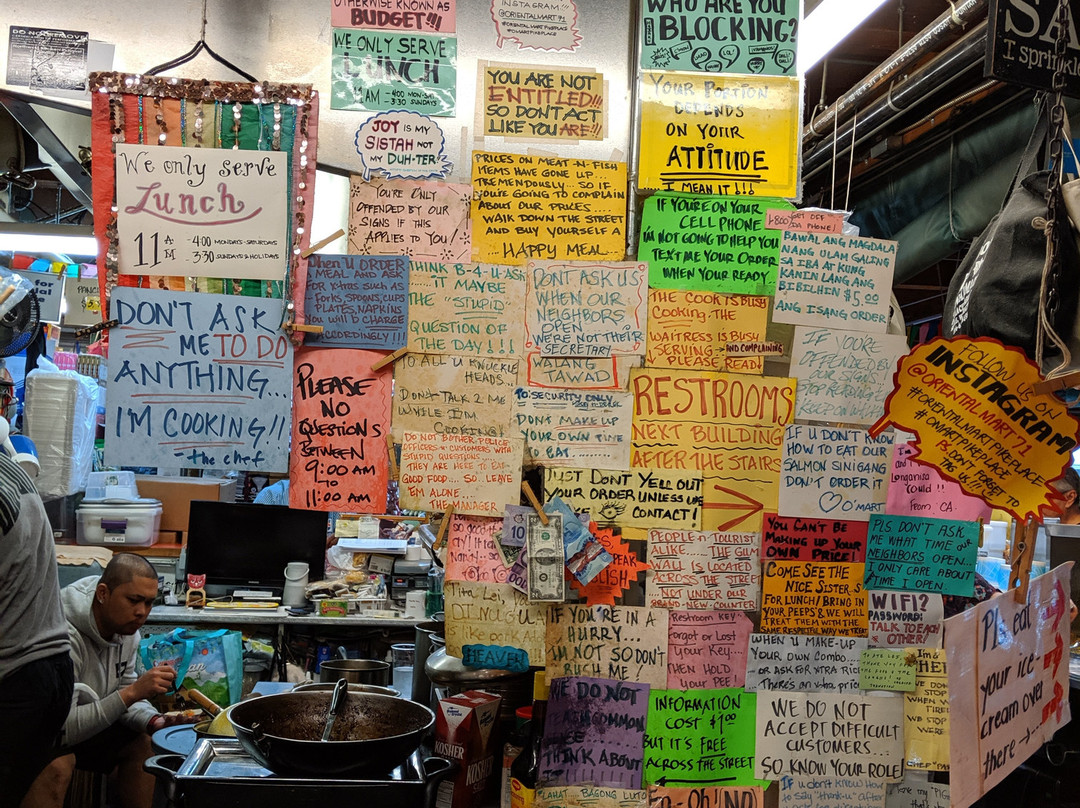 OTHERWISE KNOWN AS
BUDGET!!!
WE ONLY SERVE
LUNCH
11 AM - 4:00 MON-SAT
- 3:30 SUNDAYS
INSTAGRAM:
@ORIENTALMART71
#OMARTPIKEPLACE
WHO ARE YOU
BLOCKING?
DO NOT REMOVE
YOU ARE NOT
ENTITLED!!!
SO DON'T ACT
LIKE YOU ARE!!!
YOUR PORTION
DEPENDS
ON YOUR
ATTITUDE
I MEAN IT!!!
We only serve
Lunch
11 AM
-4:00 MONDAYS-SATURDAYS
3:30 SUNDAYS & HOLIDAYS
JOY IS MY
SISTAH NOT
MY DUH-TER!
YOU'RE ONLY
OFFENDED BY OUR
SIGNS IF THIS
APPLIES TO YOU!
PRICES ON MEAT-N-FISH
ITEMS HAVE GONE UP...
TREMENDOUSLY... SO IF
YOU'RE GOING TO COMPLAIN
ABOUT OUR PRICES....
WALK DOWN THE STREET
AND BUY YOURSELF A
HAPPY MEAL
IF YOU'RE ON YOUR
CELL PHONE
I'M NOT GOING TO HELP YOU
TEXT ME YOUR ORDER
WHEN YOUR READY
1-800-GET OFF
DA PHONE!
BAWAL ANG MAGDALA
NANG ULAM GALING
SA IBA AT KUNG
KANIN LANG ANG
BIBILHIN $5.00
ANG ISANG ORDER
DON'T ASK
ME TO DO
ANYTHING...
I'M COOKING!!
-the chef
When U ORDER
A MEAL AND ASK
FOR Xtras such as
-Forks, SPOONS, CUPS
PLATES, NAPKINS
You will B CHARGE
ACCORDINGLY!!
THINK B-4-U-ASK
...IT MAYBE
THE "STUPID"
QUESTION OF
THE DAY!!!
DON'T ASK US
WHEN OUR
NEIGHBORS
OPEN...
WE'RE NOT THEIR
SECRETARY
WALANG
TAWAD
THE COOK IS BUSY
COOKING. THE
WAITRESS IS BUSY
SERVING
AND COMPLAINING
PLEASE READ!
IF YOU'RE
OFFENDED BY
OUR SIGNS
PLEASE
NO
QUESTIONS
BETWEEN
9:00 AM
TO
11:00 AM
TO ALL U KNUCKLE
HEADS...
DON'T TALK 2 ME
WHILE I'M
COOKING!
TO: SECURITY ONLY
DON'T MAKE UP
YOUR OWN TIME
TO EAT.
RESTROOMS
NEXT BUILDING
AFTER THE STAIRS
DO NOT BOTHER POLICE
OFFICERS & CUSTOMERS WITH
STUPID QUESTIONS...
THEY ARE HERE TO EAT
GOOD FOOD... SO... LEAVE
'EM ALONE...
THE MANAGER
JUST DONT YELL OUT
YOUR ORDER UNLESS WE
EYE CONTACT!
IF U DON'T KNOW
HOW TO EAT OUR
SALMON SINIGANG
DON'T ORDER IT
O'MART
Longaniza
"could"!!
From CA.
FOLLOW US ON
INSTAGRAM
@ORIENTALMART71
#ORIENTALMARTPIKEPLACE
#OMARTPIKEPLACE
P.S. DON'T FORGET TO
TAG US!!!
PEOPLE-N-TOURIST
ALIKE... THE GUM
WALL IS LOCATED
ACROSS THE STREET
NOT UNDER OUR
BRAND-NEW COUNTER
YOU CAN'T BE
MAKING UP YOUR
OWN PRICE!
PLS DON'T ASK
ME WHAT TIME OUR
NEIGHBORS OPEN...
I ONLY CARE ABOUT
TIME I OPEN
COME SEE THE
NICE SISTER...
FOR LUNCH/BRING IN
YOUR PEEPS & WE WILL
TREAT THEM WITH THE
SAME RESPECT
WIFI?
PASSWORD:
TALK TO EACH
OTHER!
HEAVEN
IF YOU'RE IN A
HURRY...
I'M NOT SO DON'T
RUSH ME
Restroom Key
Forgot or Lost
Your Key...
THEN HOLD
YOUR PEE
WHEN U MAKE-UP
YOUR OWN Combo...
OR ASK FOR XTRA RICE
There's an xtra price
WE DO NOT
THINK ABOUT
INFORMATION
COST $1.00
BUT IT'S FREE
ACROSS THE STREET
WE DO NOT
ACCEPT DIFFICULT
CUSTOMERS...
SO KNOW YOUR ROLE
Pls eat
your ice-
cream over
there →
KOSHER
If u don't know
how to say "thank-u"